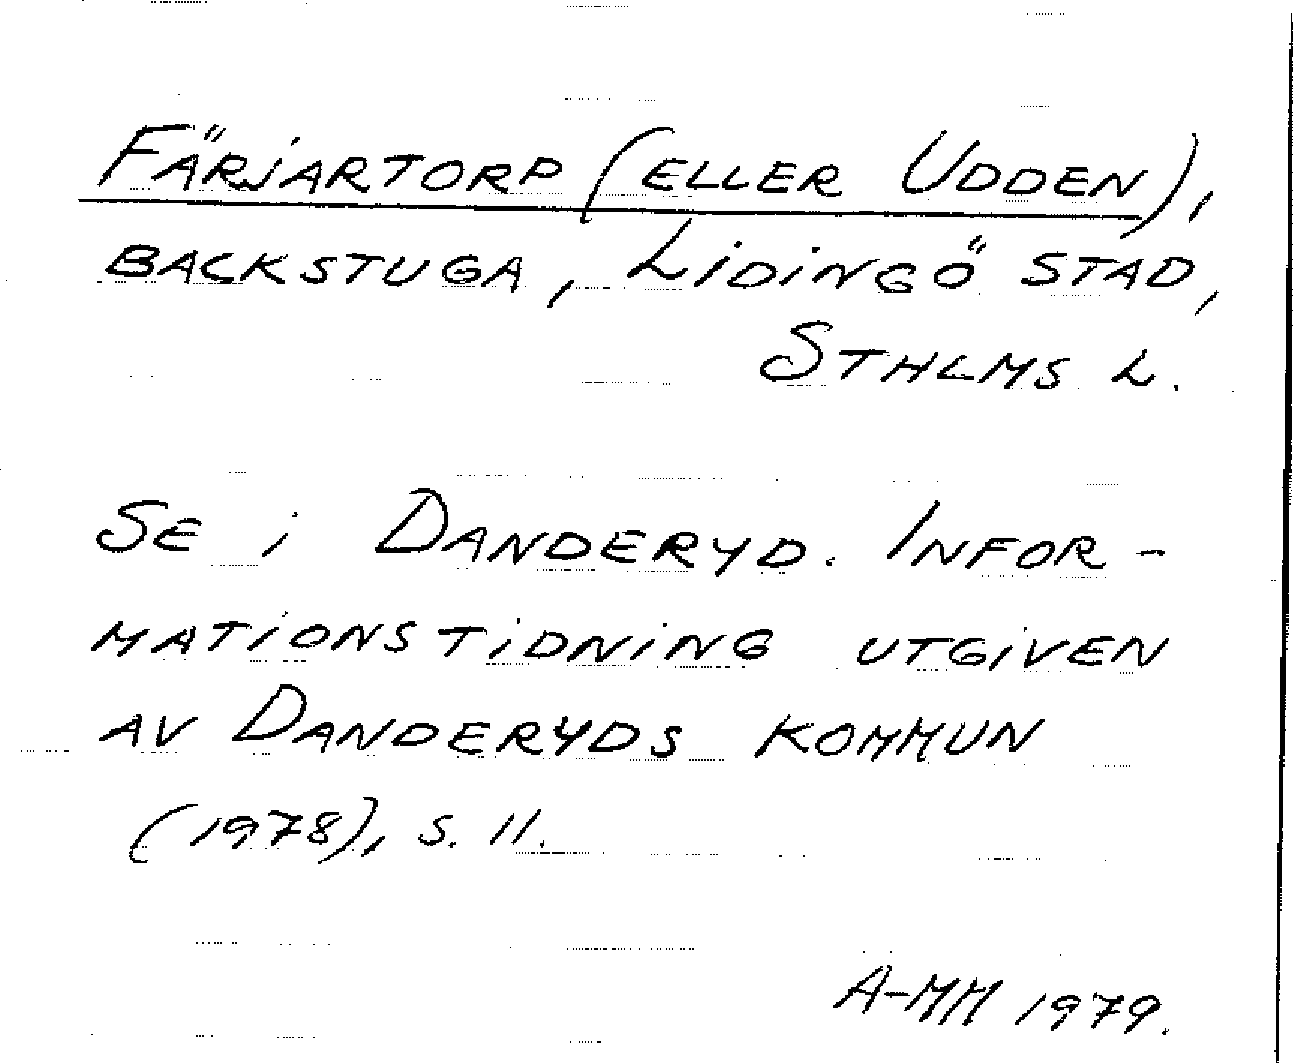 FÄRJARTORP (ELLER UDDEN),
BACKSTUGA, LIDINGÖ STAD,
STHLMS L.
SE i DANDERYD. INFOR-
MATIONSTIDNING UTGIVEN
AV DANDERYDS KOMMUN
(1978), S. 11.
A-MM 1979.